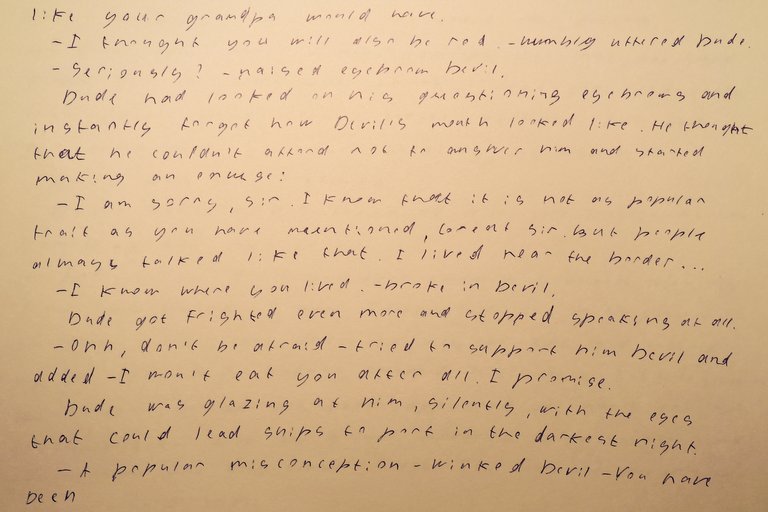 like your grandpa would have.
- I thought you will also be red. - humbly uttered Dude.
- Seriously? - raised eyebrow Devil.
Dude had looked on his questioning eyebrows and
instantly forgot how Devil's mouth looked like. He thought
that he couldn't afford not to answer him and started
making an excuse:
- I am sorry, sir. I know that it is not as popular
trait as you have mentioned, Great sir. But people
always talked like that. I lived near the border...
- I know where you lived. - broke in Devil.
Dude got frighted even more and stopped speaking at all.
- Ohh, don't be afraid - tried to support him Devil and
added - I won't eat you after all. I promise.
Dude was glazing at him, silently, with the eyes
that could lead ships to port in the darkest night.
- A popular misconception - winked Devil - You have
been